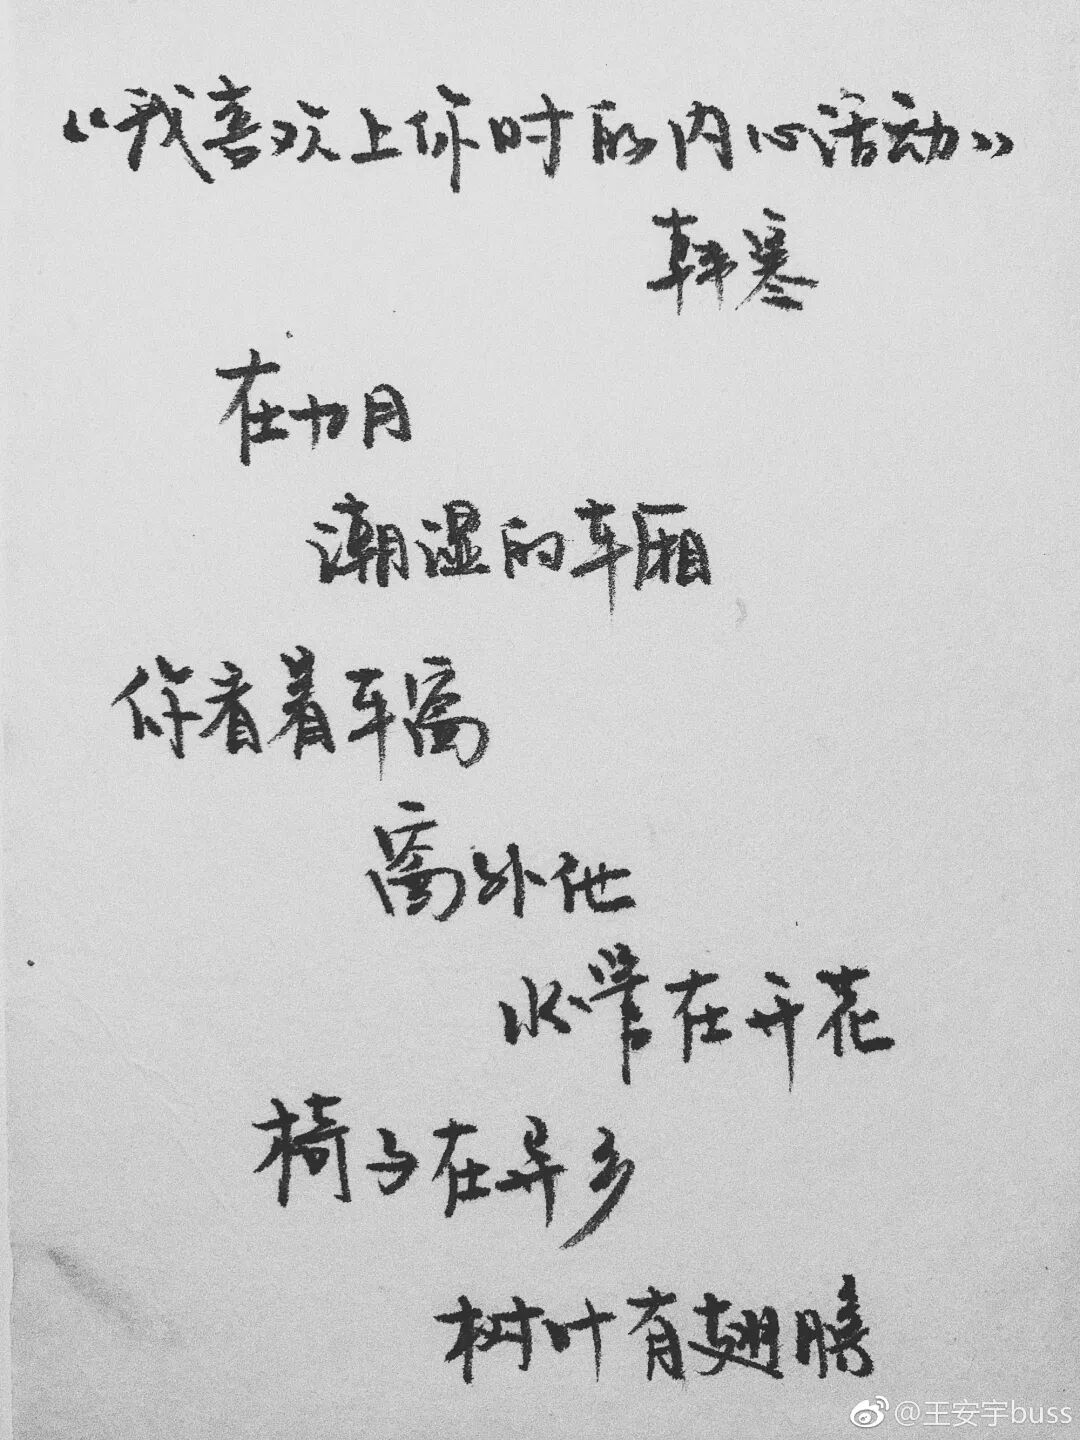 “我喜欢上你时的内心活动”
韩寒
在九月
潮湿的车厢
你看着车窗
窗外他
水管在开花
椅子在异乡
树叶有翅膀
@王安宇buss